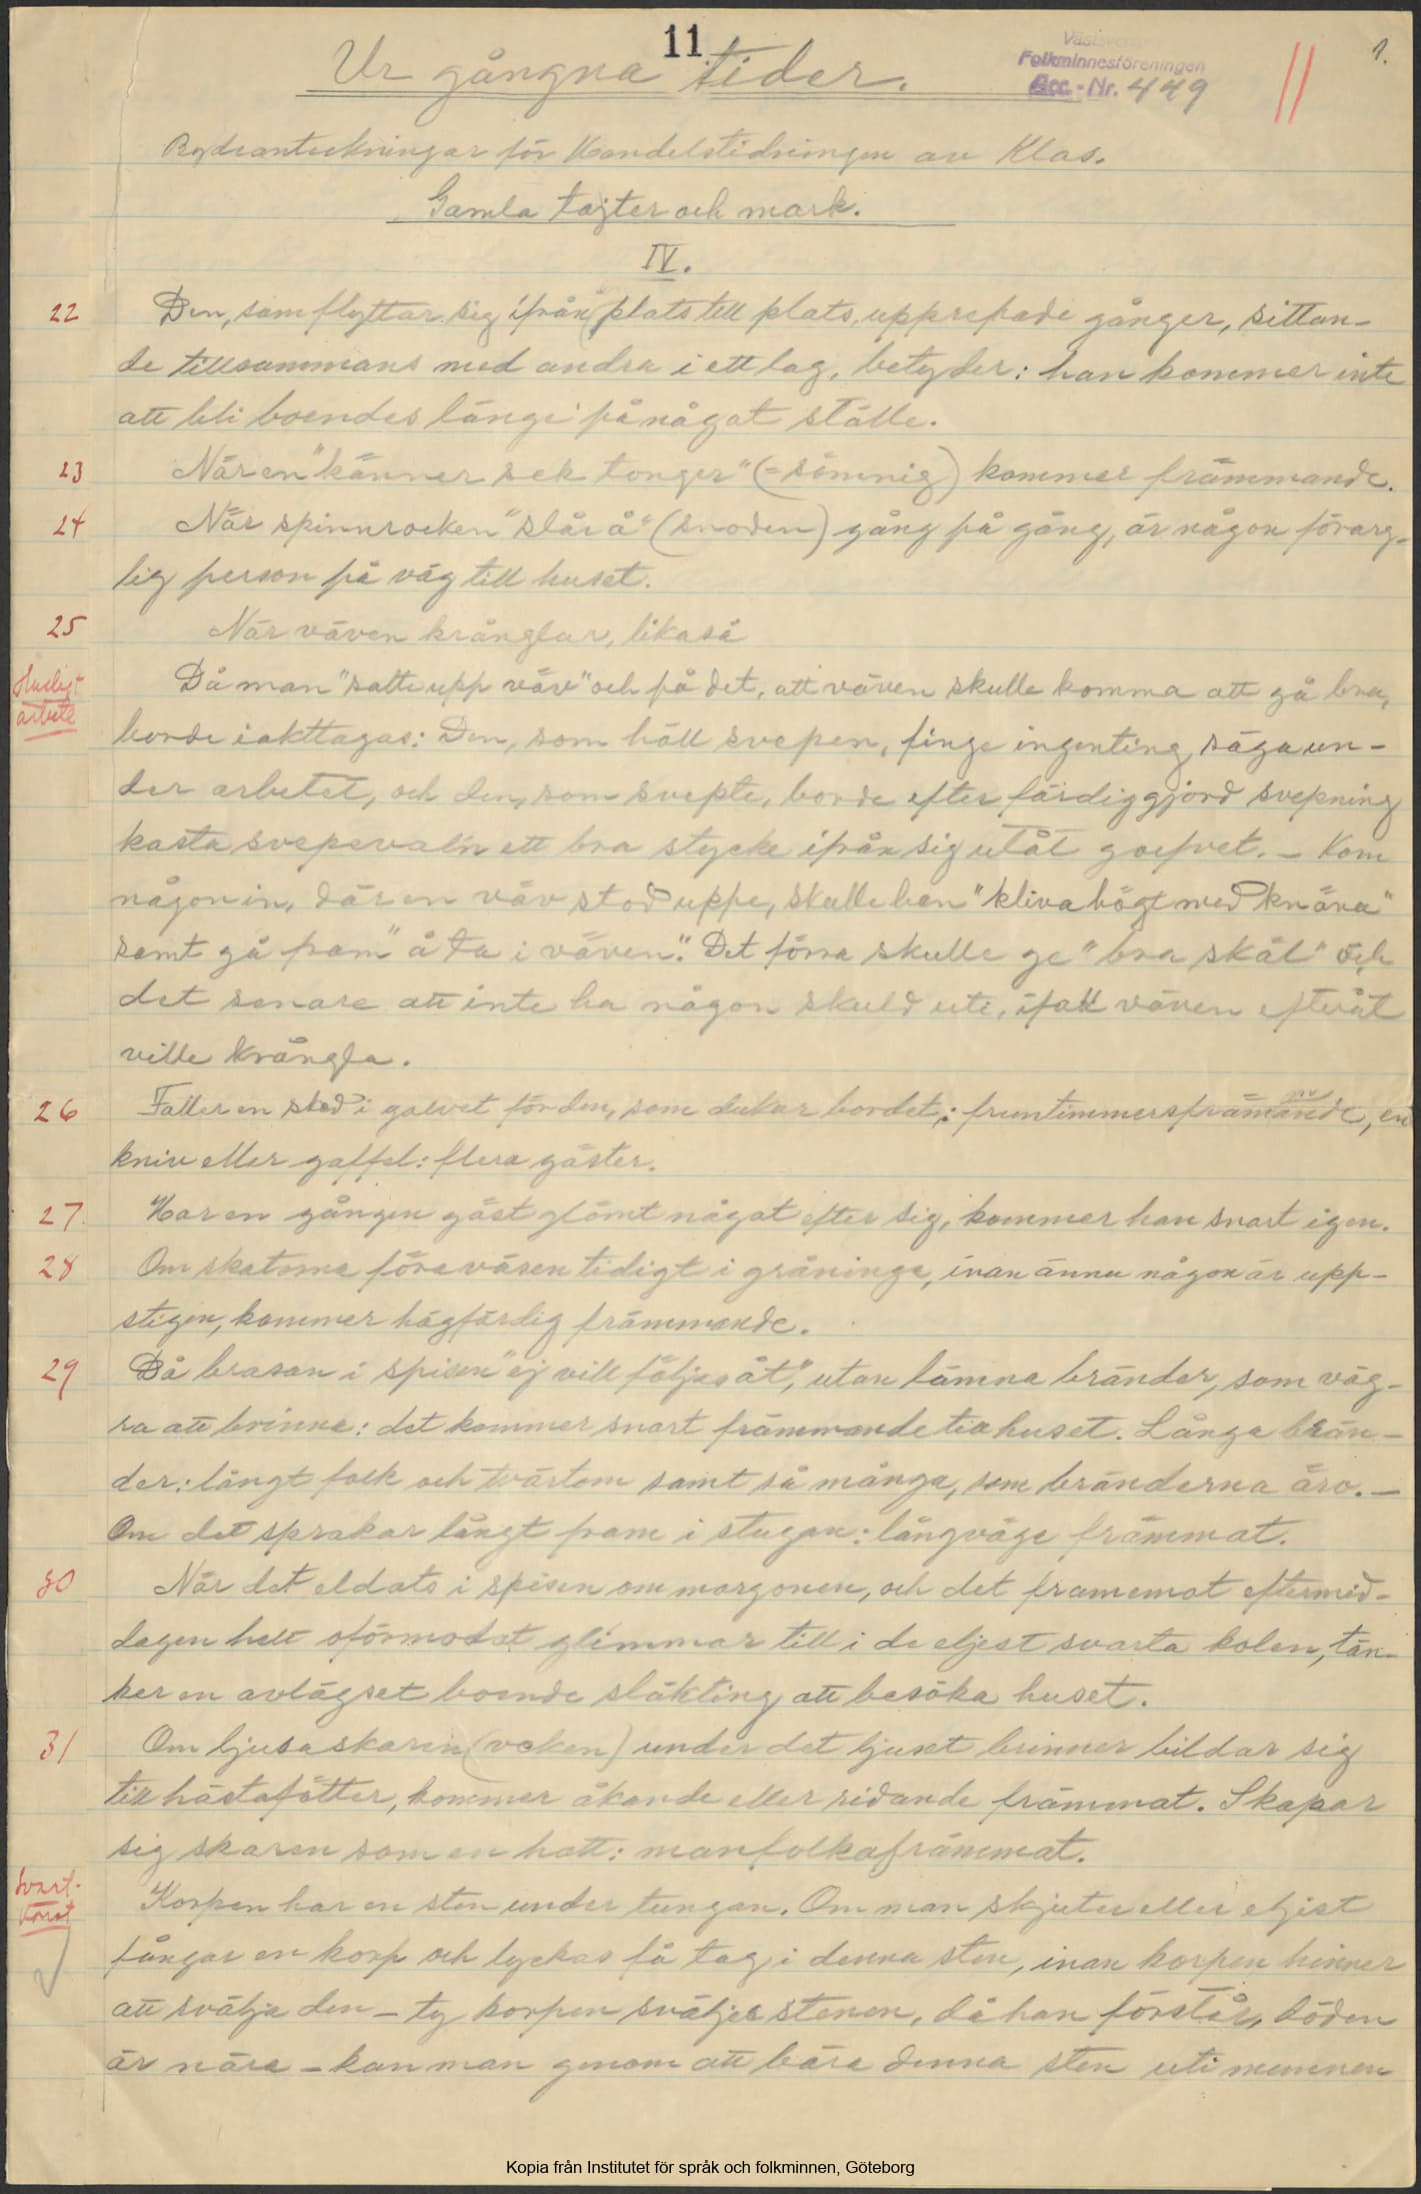 11
Ur gångna tider.
Västsvenska
Folkminnesföreningen
Acc.-Nr. 449
11
1.
Bygdeanteckningar för Handelstidningen av Klas.
Gamla tajter och mark.
IV.
22 Den, som flyttar sig ifrån plats till plats, upprepade gånger, sittan-
de tillsammans med andra i ett lag, betyder: han kommer inte
att bli boendes länge på något ställe.
23 När en "känner sek tonger" (=sömnig) kommer främmande.
24 När spinnrocken "slår å" (snoden) gång på gång, är någon förarg-
lig person på väg till huset.
25 När väven krånglar, likaså
Husligt
arbete
Då man "satte upp väv" och på det, att väven skulle komma att gå bra,
borde iakttagas: Den, som höll svepen, finge ingenting säga un-
der arbetet, och den, som svepte, borde efter färdiggjord svepning
kasta svepevaln ett bra stycke ifrån sig utåt golvet. – Kom
någon in, där en väv stod uppe, skulle han "kliva högt med knäna"
samt gå fram "å ta i väven". Det förra skulle ge "bra skäl" och
det senare att inte ha någon skuld uti, ifall väven efteråt
ville krångla.
26 Faller en sked i golvet för den, som dukar bordet,: fruntimmersfrämande, en
kniv eller gaffel: flera gäster.
27 Har en gången gäst glömt något efter sig, kommer han snart igen.
28 Om skatorna föra väsen tidigt i gråninga, innan ännu någon är upp-
stigen, kommer högfärdig främmande.
29 Då brasan i spisen "ej vill följas åt", utan lämna bränder, som väg-
ra att brinna: det kommer snart främmande till huset. Långa brän-
der: långt folk och tvärtom samt så många, som bränderna äro. –
Om det sprakar långt fram i stugan: långväga främmat.
30 När det eldats i spisen om morgonen, och det framemot eftermid-
dagen helt oförmodat glimmar till i de eljest svarta kolen, tän-
ker en avlägset boende släkting att besöka huset.
31 Om ljusaskaren (veken) under det ljuset brinner bildar sig
till hästafötter, kommer åkande eller ridande främmat. Skapar
sig skaren som en hatt: manfolkafrämmat.
Svart-
konst
Korpen har en sten under tungan. Om man skjuter eller eljest
fångar en korp och lyckas få tag i denna sten, innan korpen hinner
att svälja den – ty korpen sväljer stenen, då han förstår, döden
är nära – kan man genom att bära denna sten uti munnen
Kopia från Institutet för språk och folkminnen, Göteborg